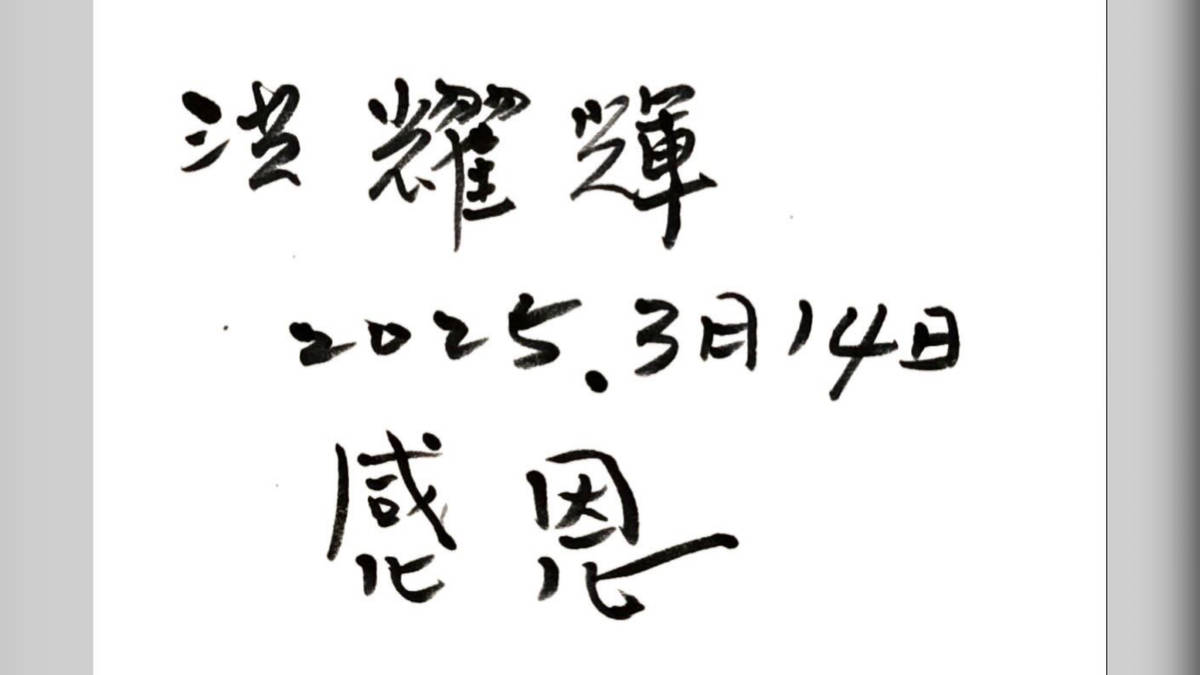 洪耀輝
2025.3月14日
感恩